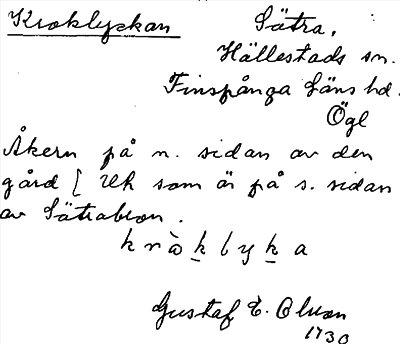 Kroklyckan
Sätra,
Hällestads sn.
Finspånga läns hd.
Ögl
Åkern på n. sidan av den
gård [ Uk som är på s. sidan
av Sätrabron.
k r å̀ k l y k a
Gustaf E. Olsson
1730